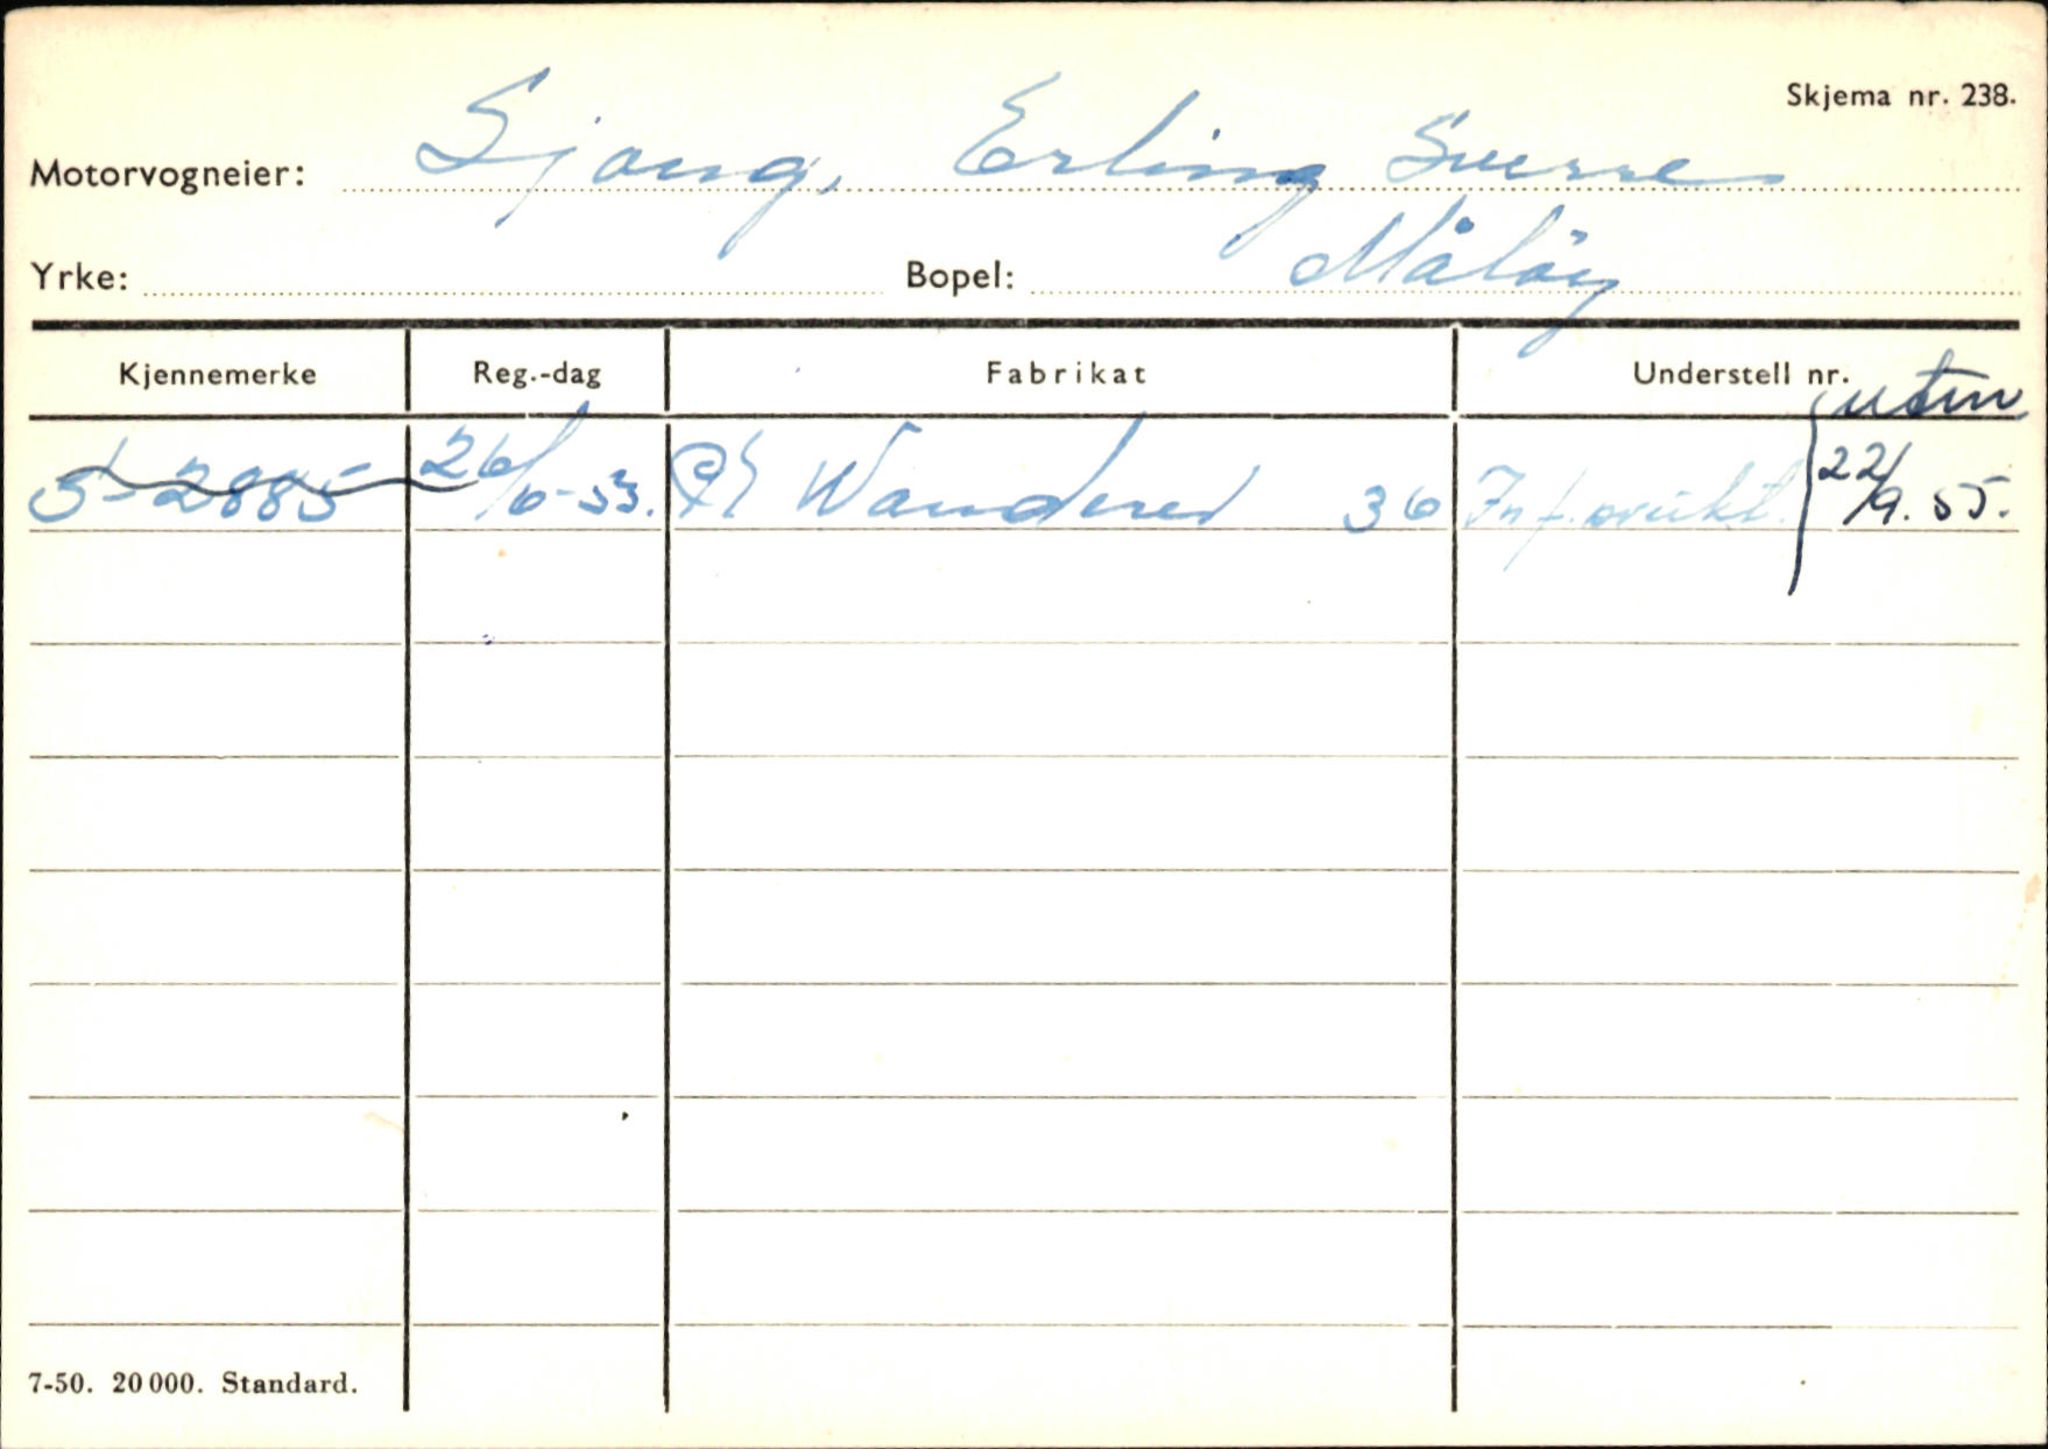 Skjema nr. 238.
Motorvogneier: Sjong, Erling Sverre
Yrke: Bopel: Måløy
Kjennemerke Reg.-dag Fabrikat Understell nr.
S-2885 26/6-53. Wanderer 36
22/9.55.
7-50. 20 000. Standard.